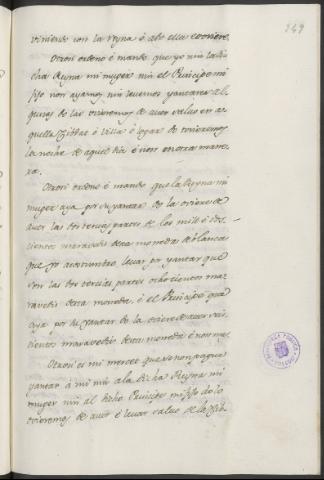 249
viniendo con la reyna ó a do ella estoviere.
Otrosi ordeno é mando que yo nin la di
cha Reyna mi muger nin el Principe mi
fijo non ayamos nin levemos yantares al
gunos de los que ovieremos de aver salvo en a
quella Cibdat é Villa é logar do tovieremos
la noche de aquel dia é non en otra mane
ra.
Otrosi ordeno é mando que la Reyna mi
muger aya por su yantar do la oviere de
aver las dos tercias partes de los mill é dos
cientos maravedis desta moneda de blancas
que yo acostumbro levar por yantar que
son las dos tercias partes ochocientos ma
ravedis desta moneda, é el Principe que
aya por su yantar do la oviere de aver seis
cientos maravedis desta moneda é non mas.
Otrosi es mi merced que non paguen
yantar á mi nin a la dicha Reyna mi
muger nin al dicho Principe mi fijo do lo
ovieremos de aver é levar salvo de las Cib